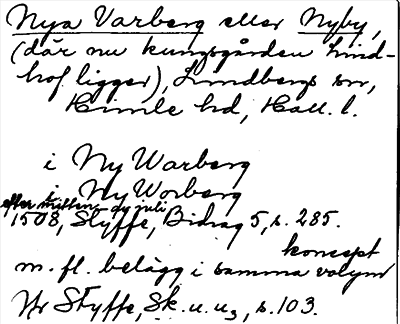 Nya Varberg eller Nyby,
(där nu kungsgården Lind-
hof ligger), Lindbergs sn,
Himle hd, Hall. l.
i Ny Warberg
i Ny Worberg
efter mitten av juli
1508, Styffe, Bidrag 5, s. 285.
koncept
m. fl. belägg i samma volym
Hr Styffe, Sk. u. u3, s. 103.